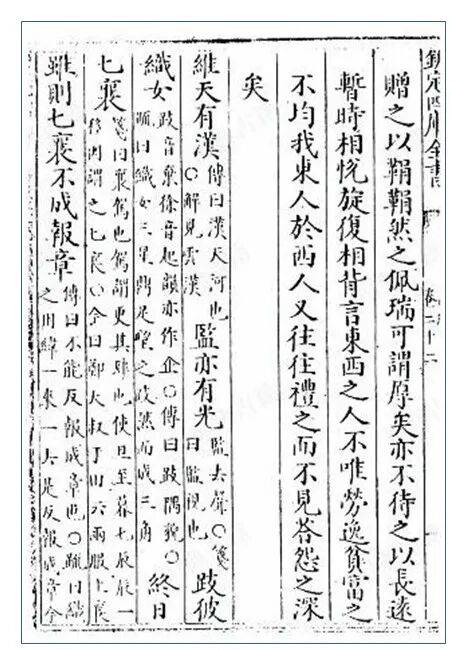 欽定四庫全書
卷二十二
贈之以鞙鞙然之佩瑞可謂厚矣亦不待之以長遠
暫時相恱旋復相背言東西之人不唯勞逸貧富之
不均我東人於西人又往往禮之而不見答怨之深
矣
維天有漢傳曰漢天河也○解見雲漢監亦有光監去聲○箋曰監視也跂彼
織女跂音棄徐音起韻亦作企○傳曰跂隅貌○疏曰織女三星鼎足望之跂然而成三角終日
七襄箋曰襄駕也駕謂更其肆也從旦至暮七辰辰一移因謂之七襄○今曰鄭大叔于田云兩服上襄
雖則七襄不成報章傳曰不能反報成章也○疏曰織之用緯一來一去是反報成章今